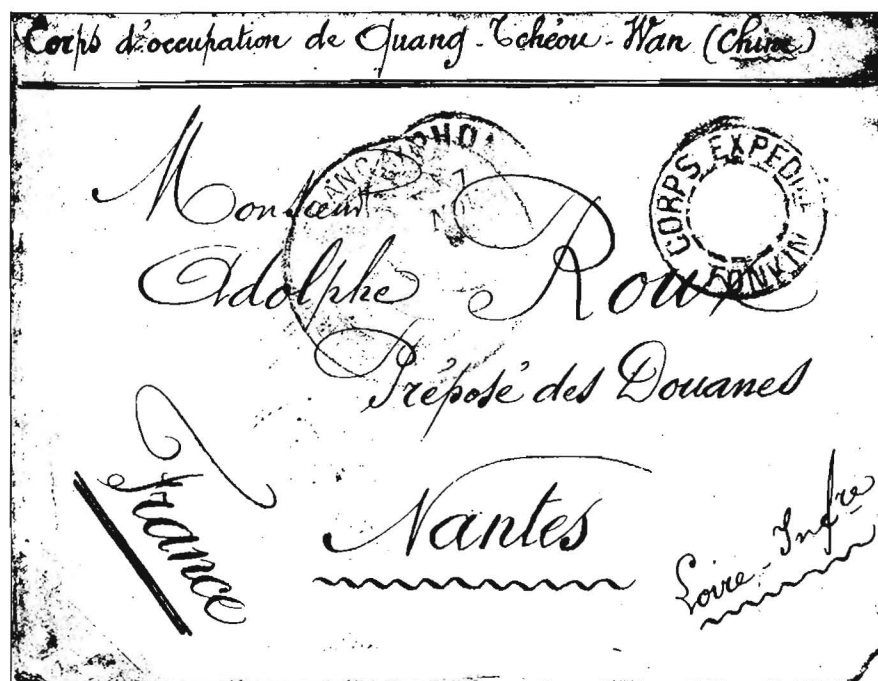 Corps d'occupation de Quang-Tchéou-Wan (Chine)
CORPS EXPEDI
TONKIN
Monsieur
Adolphe Roux
Préposé des Douanes
France
Nantes
Loire-Infre